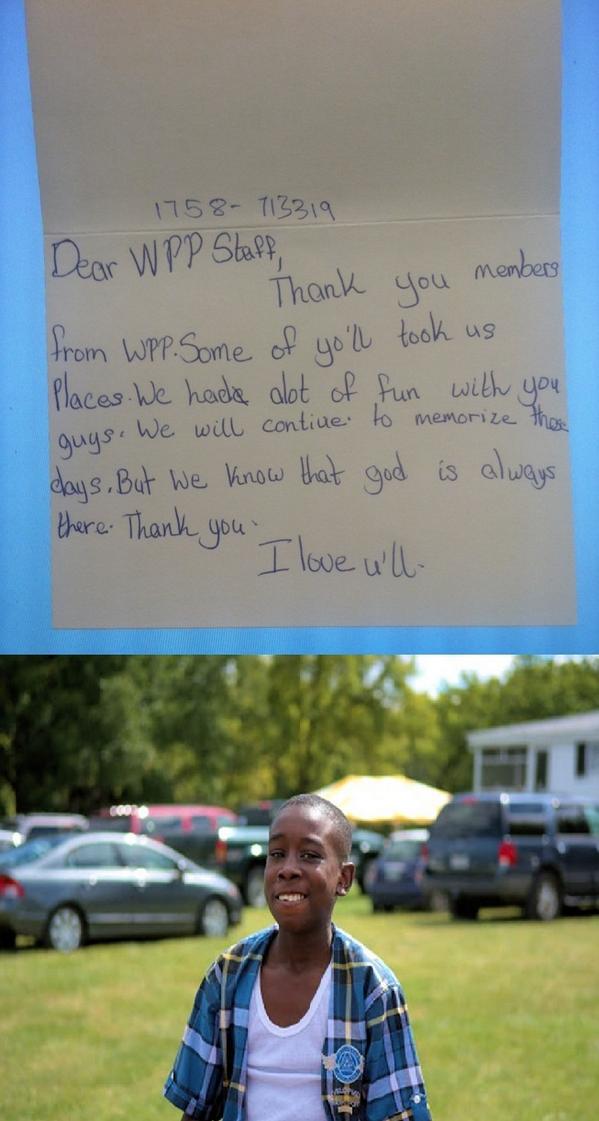 1758- 713319
Dear WPP Staff,
Thank you members
from WPP. Some of yo'll took us
Places. We had alot of fun with you
guys. We will contiue. to memorize these
days. But We know that god is always
there. Thank you.
I love u'll.